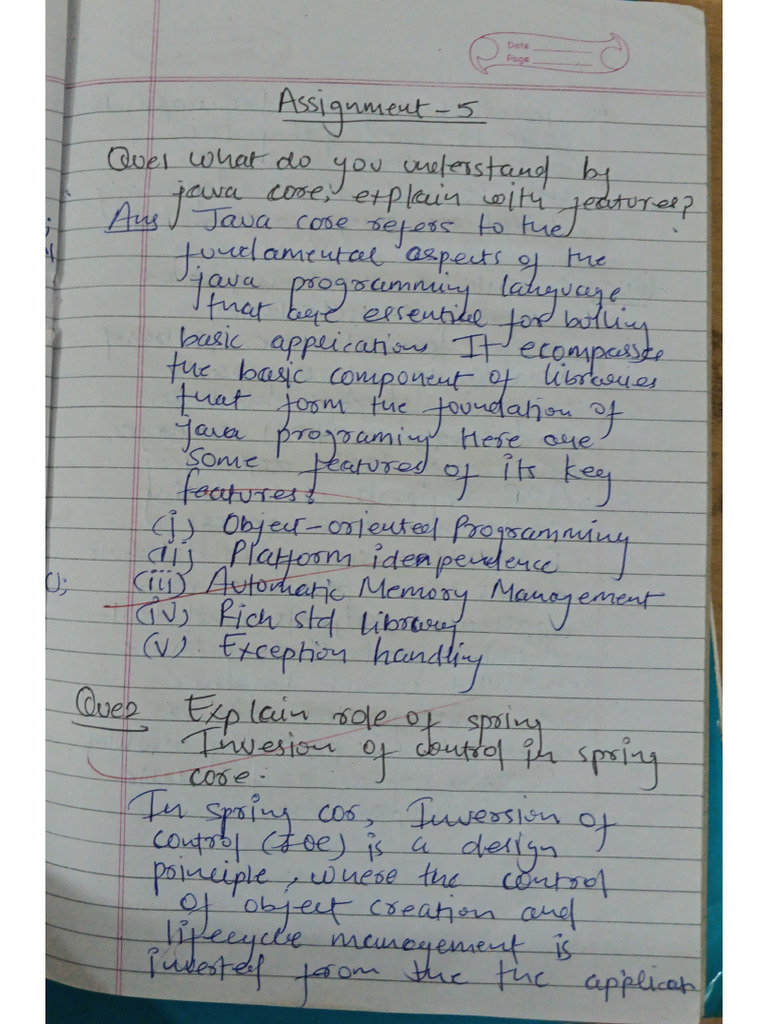 Date
Page
Assignment - 5
Que1 What do you understand by
java core, explain with features?
Ans Java core refers to the
fundamental aspects of the
java programming language
that are essential for
basic application It ecompasste
the basic component of libraries
that form the foundation of
java programing Here are
some features of its key
features:
(i) Object-oriented Programming
(ii) Platform idenpendence
(iii) Automatic Memory Management
(iv) Rich std library
(v) Exception handling
Que2 Explain role of spring
Invesion of control in spring
core.
In spring cor, Inversion of
control (IOC) is a design
principle, where the control
of object creation and
lifecycle management is
inverted from the the applicat